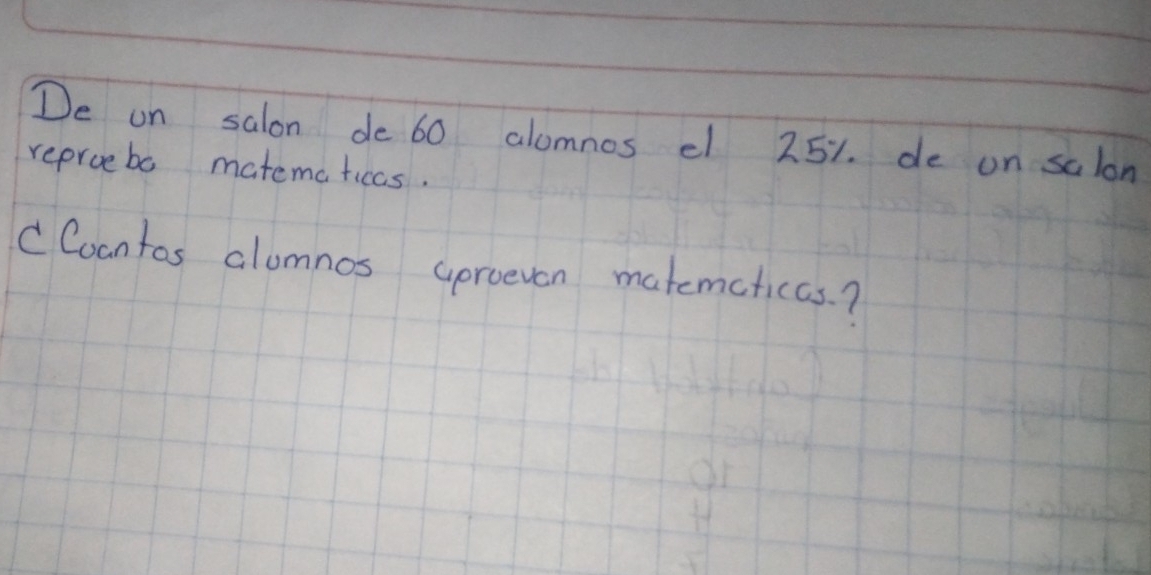 De un salon de 60 alumnos el 25%. de un salon
reprueba matematicas.
¿Cuantos alumnos apruevan matematicas.?